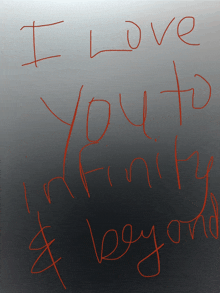 I LOVE
YOU to
infinity
& beyond